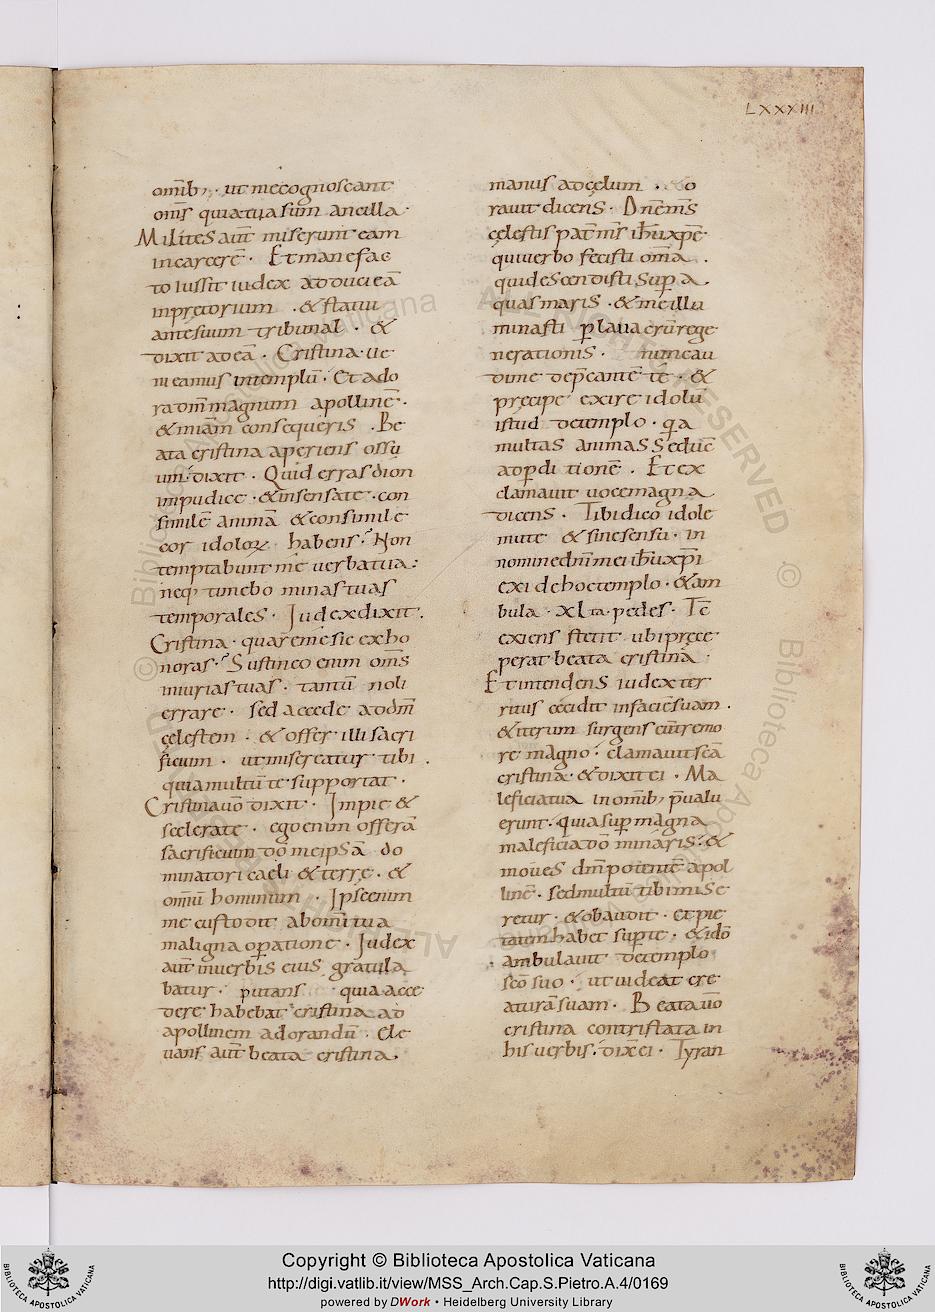 LXXXIII
omib; · ut mecognoscant
om̄s quiatuasum ancilla ·
Milites aut̄ miserunt eam
incarcerē · Et mane fac
to iussit iudex adduci eā
inpretorium · & statui
antesuum tribunal · &
dixit adeā · Cristina · ue
ni eamus intemplū · Et ado
radm̄ magnum apollinē ·
& miām consequeris · Be
ata cristina aperiens ossu
um · dixit · Quid erras dion
impudice · & insensate · con
similē animā & consimile
cor idoloꝝ habens · Non
temptabunt me uerbatua :
neq; timebo minas tuas
temporales · Iudex dixit ·
Cristina · quare me sic exho
noras · Sustineo enim om̄s
iniurias tuas · tantū noli
errare · sed accede addm̄
cęlestem · & offer illi sacri
ficium · ut misereatur tibi ·
quia multū te supportat ·
Cristina uō dixit · Impie &
scelerate · ego enim offerā
sacrificium dō meipsā do
minatori caeli & terrę · &
omiū hominum · Ipse enim
me custodit abomi tua
maligna opatione · Iudex
aut̄ inuerbis eius gratula
batur · putans quia acce
dere habebat cristina ad
apollinem adorandū · Ele
uans aut̄ beata cristina ·
manus adcęlum ·
rauit dicens · Dnē ms
cęlestis pat nr̄i ihūxpē ·
qui uerbo fecisti omā ·
qui descendisti sup a
quas maris · & me illu
minasti p lauacrū rege
nerationis · nunc au
di me dep̄cantē te · &
pręcipe exire idolū
istud detemplo · qa
multas animas seduc̄
adpditionē · Et ex
clamauit uocemagna
dicens · Tibi dico idole
mute & sine sensu · in
nominednīmei ihūxpī
exi dehoctemplo · & am
bula · xL ta · pedes · Tc̄
exiens stetit ubi pręce
perat beata cristina ·
Et intendens iudex ter
ritus cecidit infaciē suam ·
& iterum surgens cū tremo
re magno · clamauit scā
cristina · & dixit ei · Ma
leficiatua inomib; p̄ualu
erunt · quia sup magna
maleficia dō minaris · &
moues dm̄ potentē apol
linē · sed multū tibi mise
retur · & obaudit · et pie
tatem habet sup te · & idō
ambulauit detemplo
scō suo · ut uideat cre
aturā suam · Beata uō
cristina contristata in
his uerbis · dix̄ ei · Tyran
Copyright © Biblioteca Apostolica Vaticana
http://digi.vatlib.it/view/MSS_Arch.Cap.S.Pietro.A.4/0169
powered by DWork • Heidelberg University Library